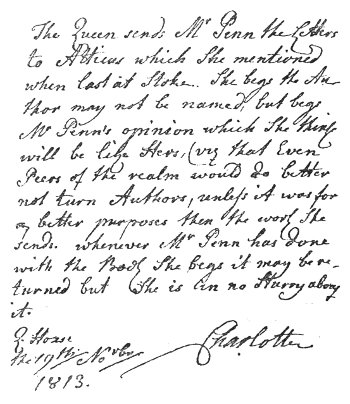 The Queen sends Mr Penn the Letters
to Atticus which She mentioned
when last at Stoke. She begs the Au-
thor may not be named, but begs
Mr Penn's opinion which She thinks
will be like Hers, (viz that Even
Peers of the realm would do better
not turn Authors, unless it was for
a better purposes then the work She
sends. whenever Mr Penn has done
with the Book She begs it may be re-
turned but She is in no Hurry about
it.
Q. House
the 19th Novber
1813.
Charlotte